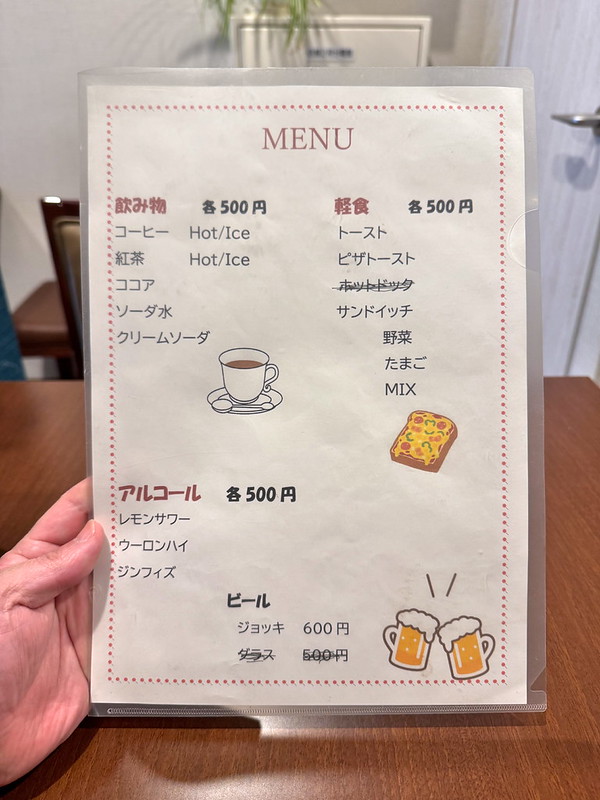 MENU
飲み物 各500円
コーヒー Hot/Ice
紅茶 Hot/Ice
ココア
ソーダ水
クリームソーダ
軽食 各500円
トースト
ピザトースト
ホットドッグ
サンドイッチ
野菜
たまご
MIX
アルコール 各500円
レモンサワー
ウーロンハイ
ジンフィズ
ビール
ジョッキ 600円
グラス 500円